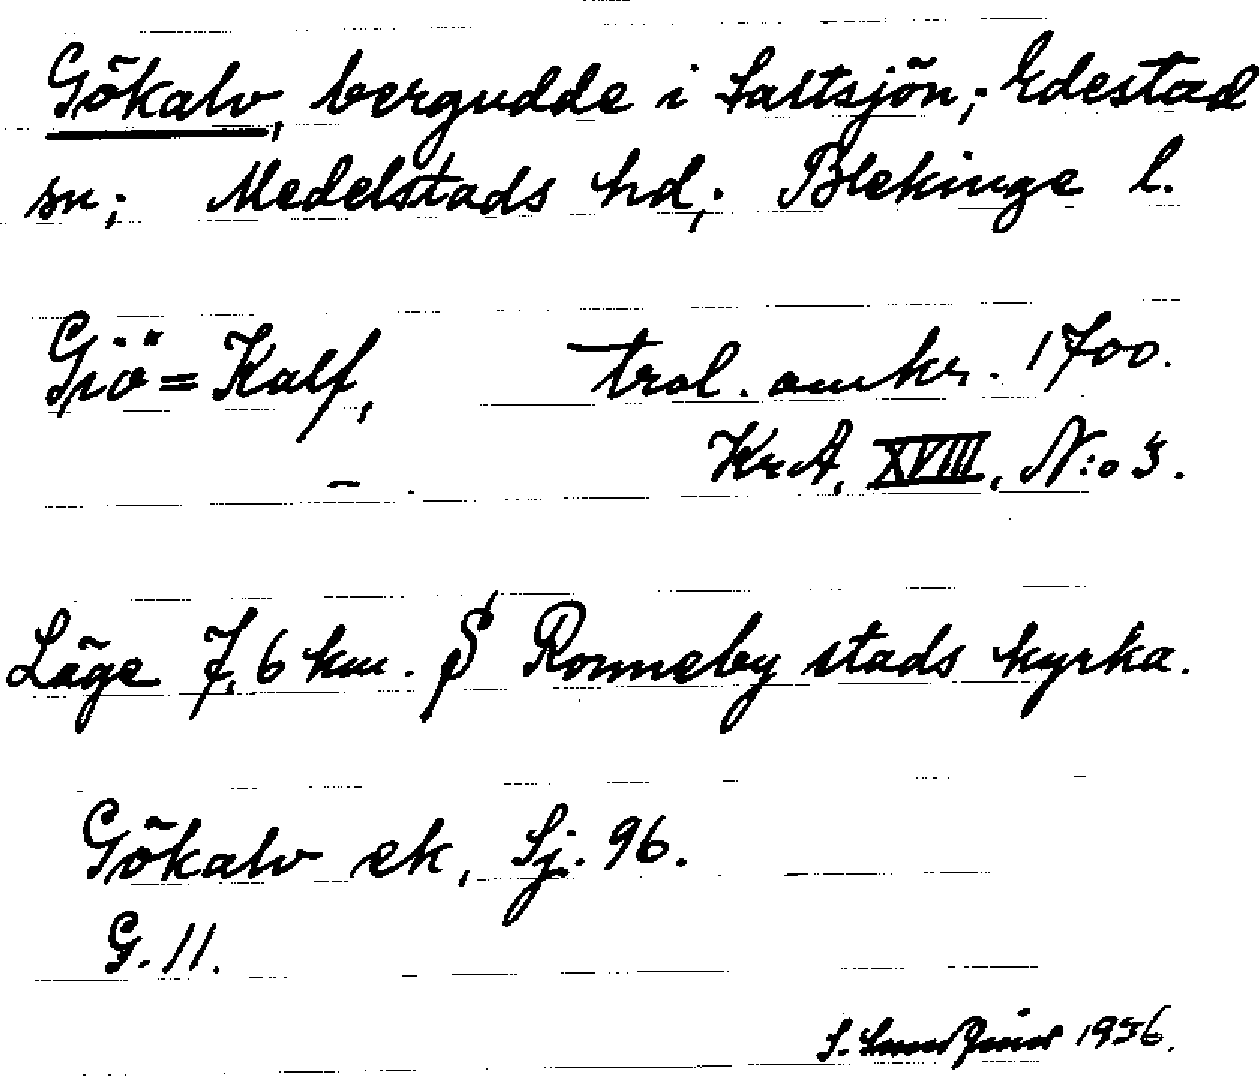 Gökalv, bergudde i Saltsjön; Edestad
sn; Medelstads hd,; Blekinge l.
Giö=Kalf, trol. omkr. 1700.
– . KrA, XVIII, N:o 3.
Läge 7,6 km. S Ronneby stads kyrka.
Gökalv ek, Sj. 96.
G. 11.
S. 1956.